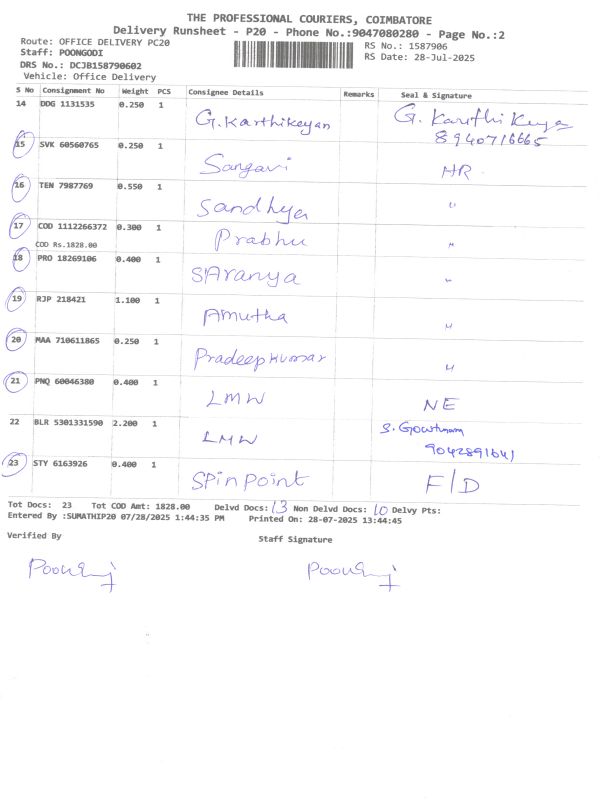 THE PROFESSIONAL COURIERS, COIMBATORE
Delivery Runsheet - P20 - Phone No.:9047080280 - Page No.:2
Route: OFFICE DELIVERY PC20 RS No.: 1587906
Staff: POONGODI RS Date: 28-Jul-2025
DRS No.: DCJB158790602
Vehicle: Office Delivery
S No Consignment No Weight PCS Consignee Details Remarks Seal & Signature
14 DDG 1131535 0.250 1 G.Karthikeyan G. Karthikeyan
8940716665
15 SVK 60560765 0.250 1 Sangavi HR
16 TEN 7987769 0.550 1 Sandhya "
17 COD 1112266372 0.300 1 Prabhu "
COD Rs.1828.00
18 PRO 18269106 0.400 1 SARanya "
19 RJP 218421 1.100 1 Amutha "
20 MAA 710611865 0.250 1 Pradeepkumar "
21 PNQ 60046380 0.400 1 LMW NE
22 BLR 5301331590 2.200 1 LMW S. Gowtham
9042891641
23 STY 6163926 0.400 1 SPinPoint F/D
Tot Docs: 23 Tot COD Amt: 1828.00 Delvd Docs: 13 Non Delvd Docs: 10 Delvy Pts:
Entered By :SUMATHIP20 07/28/2025 1:44:35 PM Printed On: 28-07-2025 13:44:45
Verified By Staff Signature